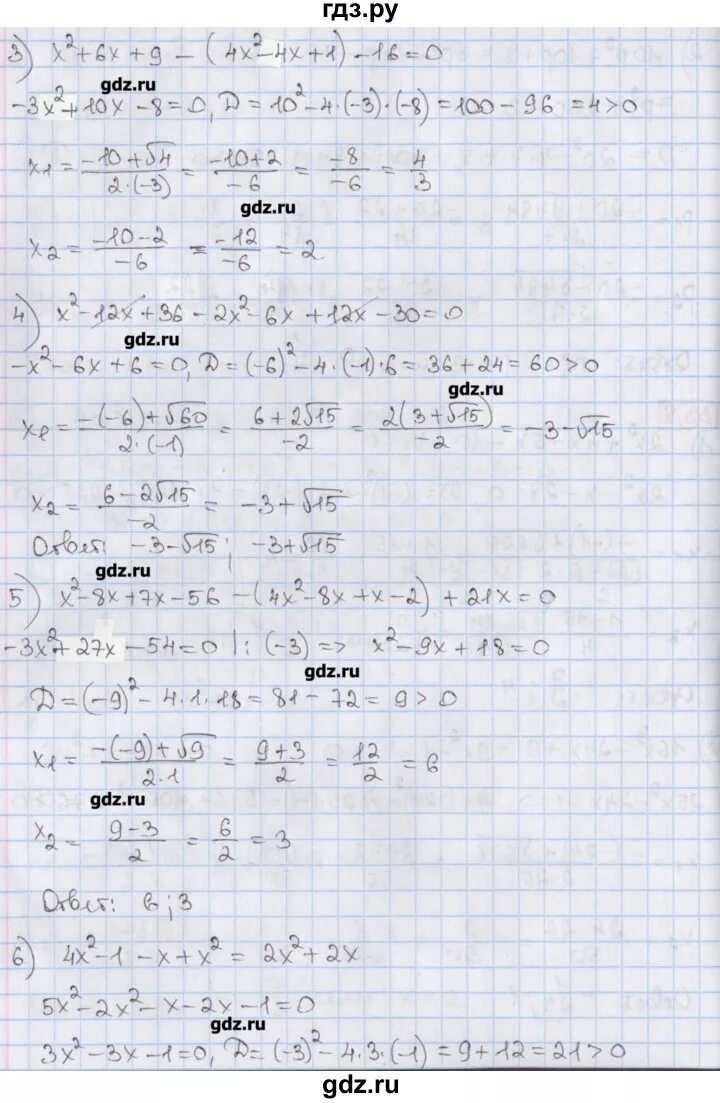 гдз.ру
3) x²+6x+9-(4x²-4x+1)-16=0
gdz.ru
-3x²+10x-8=0, D=10²-4·(-3)·(-8)=100-96=4>0
x1=(-10+√4)/(2·(-3))=(-10+2)/(-6)=(-8)/(-6)=4/3
gdz.ru
x2=(-10-2)/(-6)=(-12)/(-6)=2
4) x²-12x+36-2x²-6x+12x-30=0
gdz.ru
-x²-6x+6=0, D=(-6)²-4·(-1)·6=36+24=60>0
gdz.ru
x1=(-(-6)+√60)/(2·(-1))=(6+2√15)/(-2)=(2(3+√15))/(-2)=-3-√15
x2=(6-2√15)/(-2)=-3+√15
Ответ: -3-√15; -3+√15
gdz.ru
5) x²-8x+7x-56-(4x²-8x+x-2)+21x=0
-3x²+27x-54=0 |:(-3) => x²-9x+18=0
gdz.ru
D=(-9)²-4·1·18=81-72=9>0
x1=(-(-9)+√9)/(2·1)=(9+3)/2=12/2=6
gdz.ru
x2=(9-3)/2=6/2=3
Ответ: 6;3
6) 4x²-1-x+x²=2x²+2x
5x²-2x²-x-2x-1=0
gdz.ru
3x²-3x-1=0, D=(-3)²-4·3·(-1)=9+12=21>0
gdz.ru